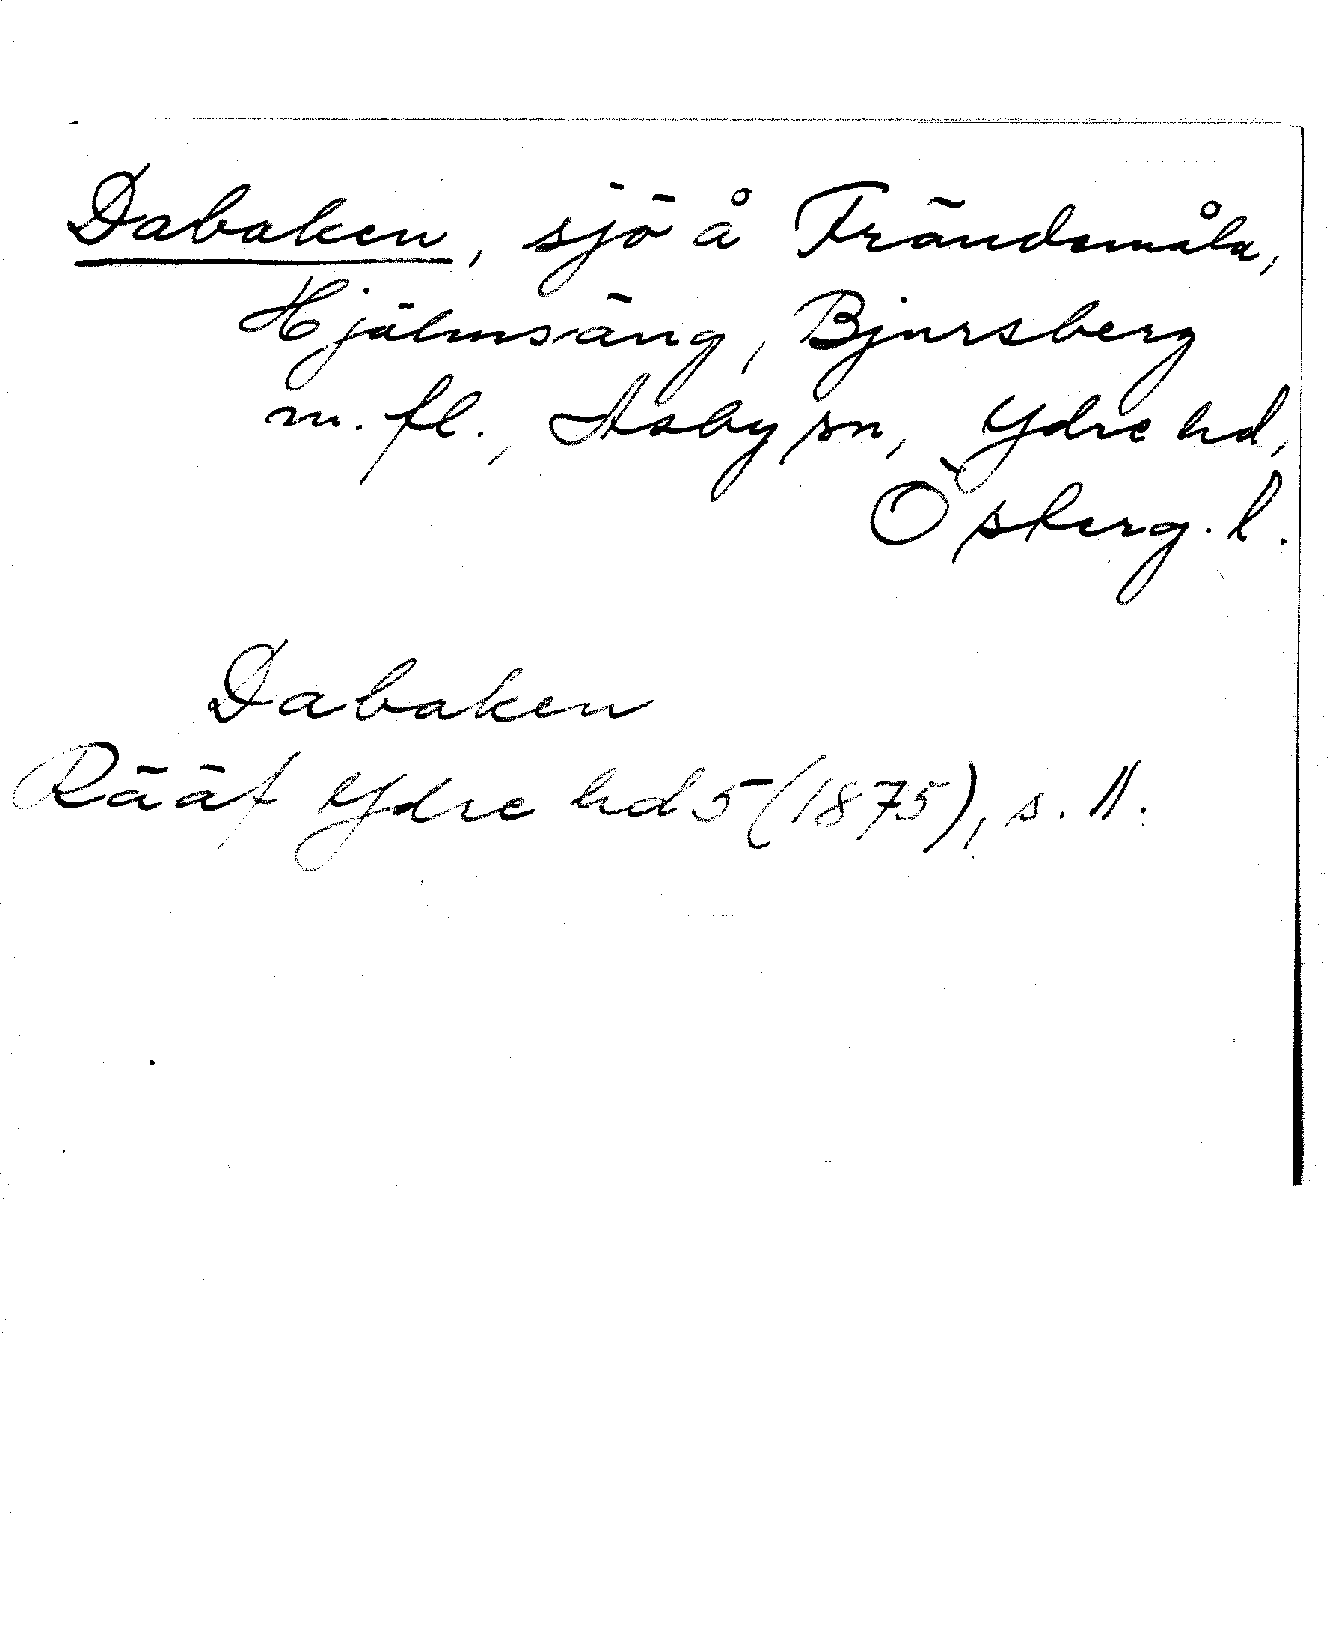 Dabaken, sjö å Frändsmåla,
Hjälmsäng, Bjursberg
m. fl., Asby sn, Ydre hd,
Österg. l.
Dabaken
Rääf Ydre hd 5 (1875), s. 11.